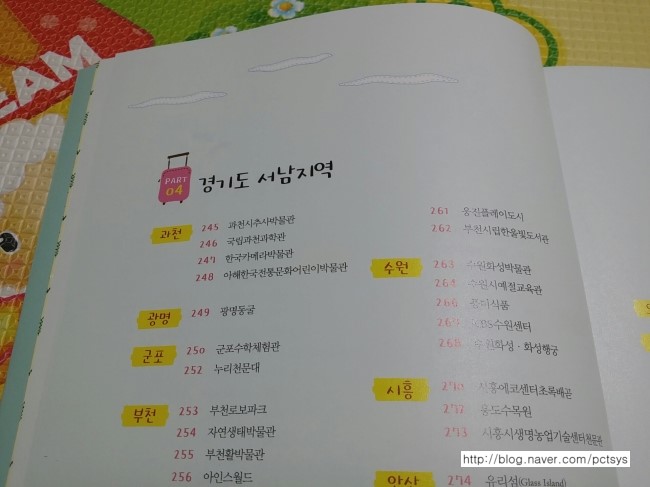 EAM
PART
04
경기도 서남지역
과천
245 과천시추사박물관
246 국립과천과학관
247 한국카메라박물관
248 아해한국전통문화어린이박물관
광명
249 광명동굴
군포
250 군포수학체험관
252 누리천문대
부천
253 부천로보파크
254 자연생태박물관
255 부천활박물관
256 아인스월드
261 웅진플레이도시
262 부천시립한울빛도서관
수원
263 수원화성박물관
264 수원시예절교육관
풀이식품
KBS수원센터
268 수원화성 · 화성행궁
시흥
270 시흥에코센터초록배곧
272 옹도수목원
273 시흥시생명농업기술센터천문관
안산
274 유리섬(Glass Island)
http://blog.naver.com/pctsys